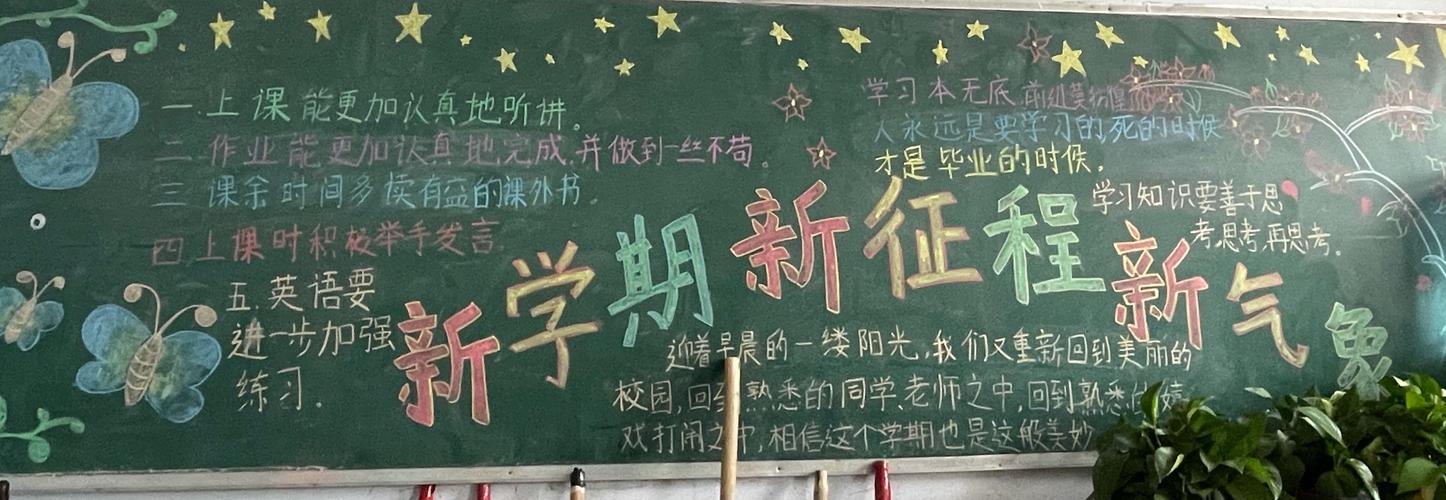 一.上课能更加认真地听讲。
二.作业能更加认真地完成.并做到一丝不苟。
三.课余时间多读有益的课外书.
四.上课时积极举手发言
五.英语要
进一步加强
练习.
新学期新征程新气象
学习本无底.前进莫彷徨
人永远是要学习的死的时候
才是毕业的时候.
学习知识要善于思
考.思考.再思考.
迎着早晨的一缕阳光,我们又重新回到美丽的
校园,回到熟悉的同学、老师之中,回到熟悉的嬉
戏打闹之中,相信这个学期也是这般美妙